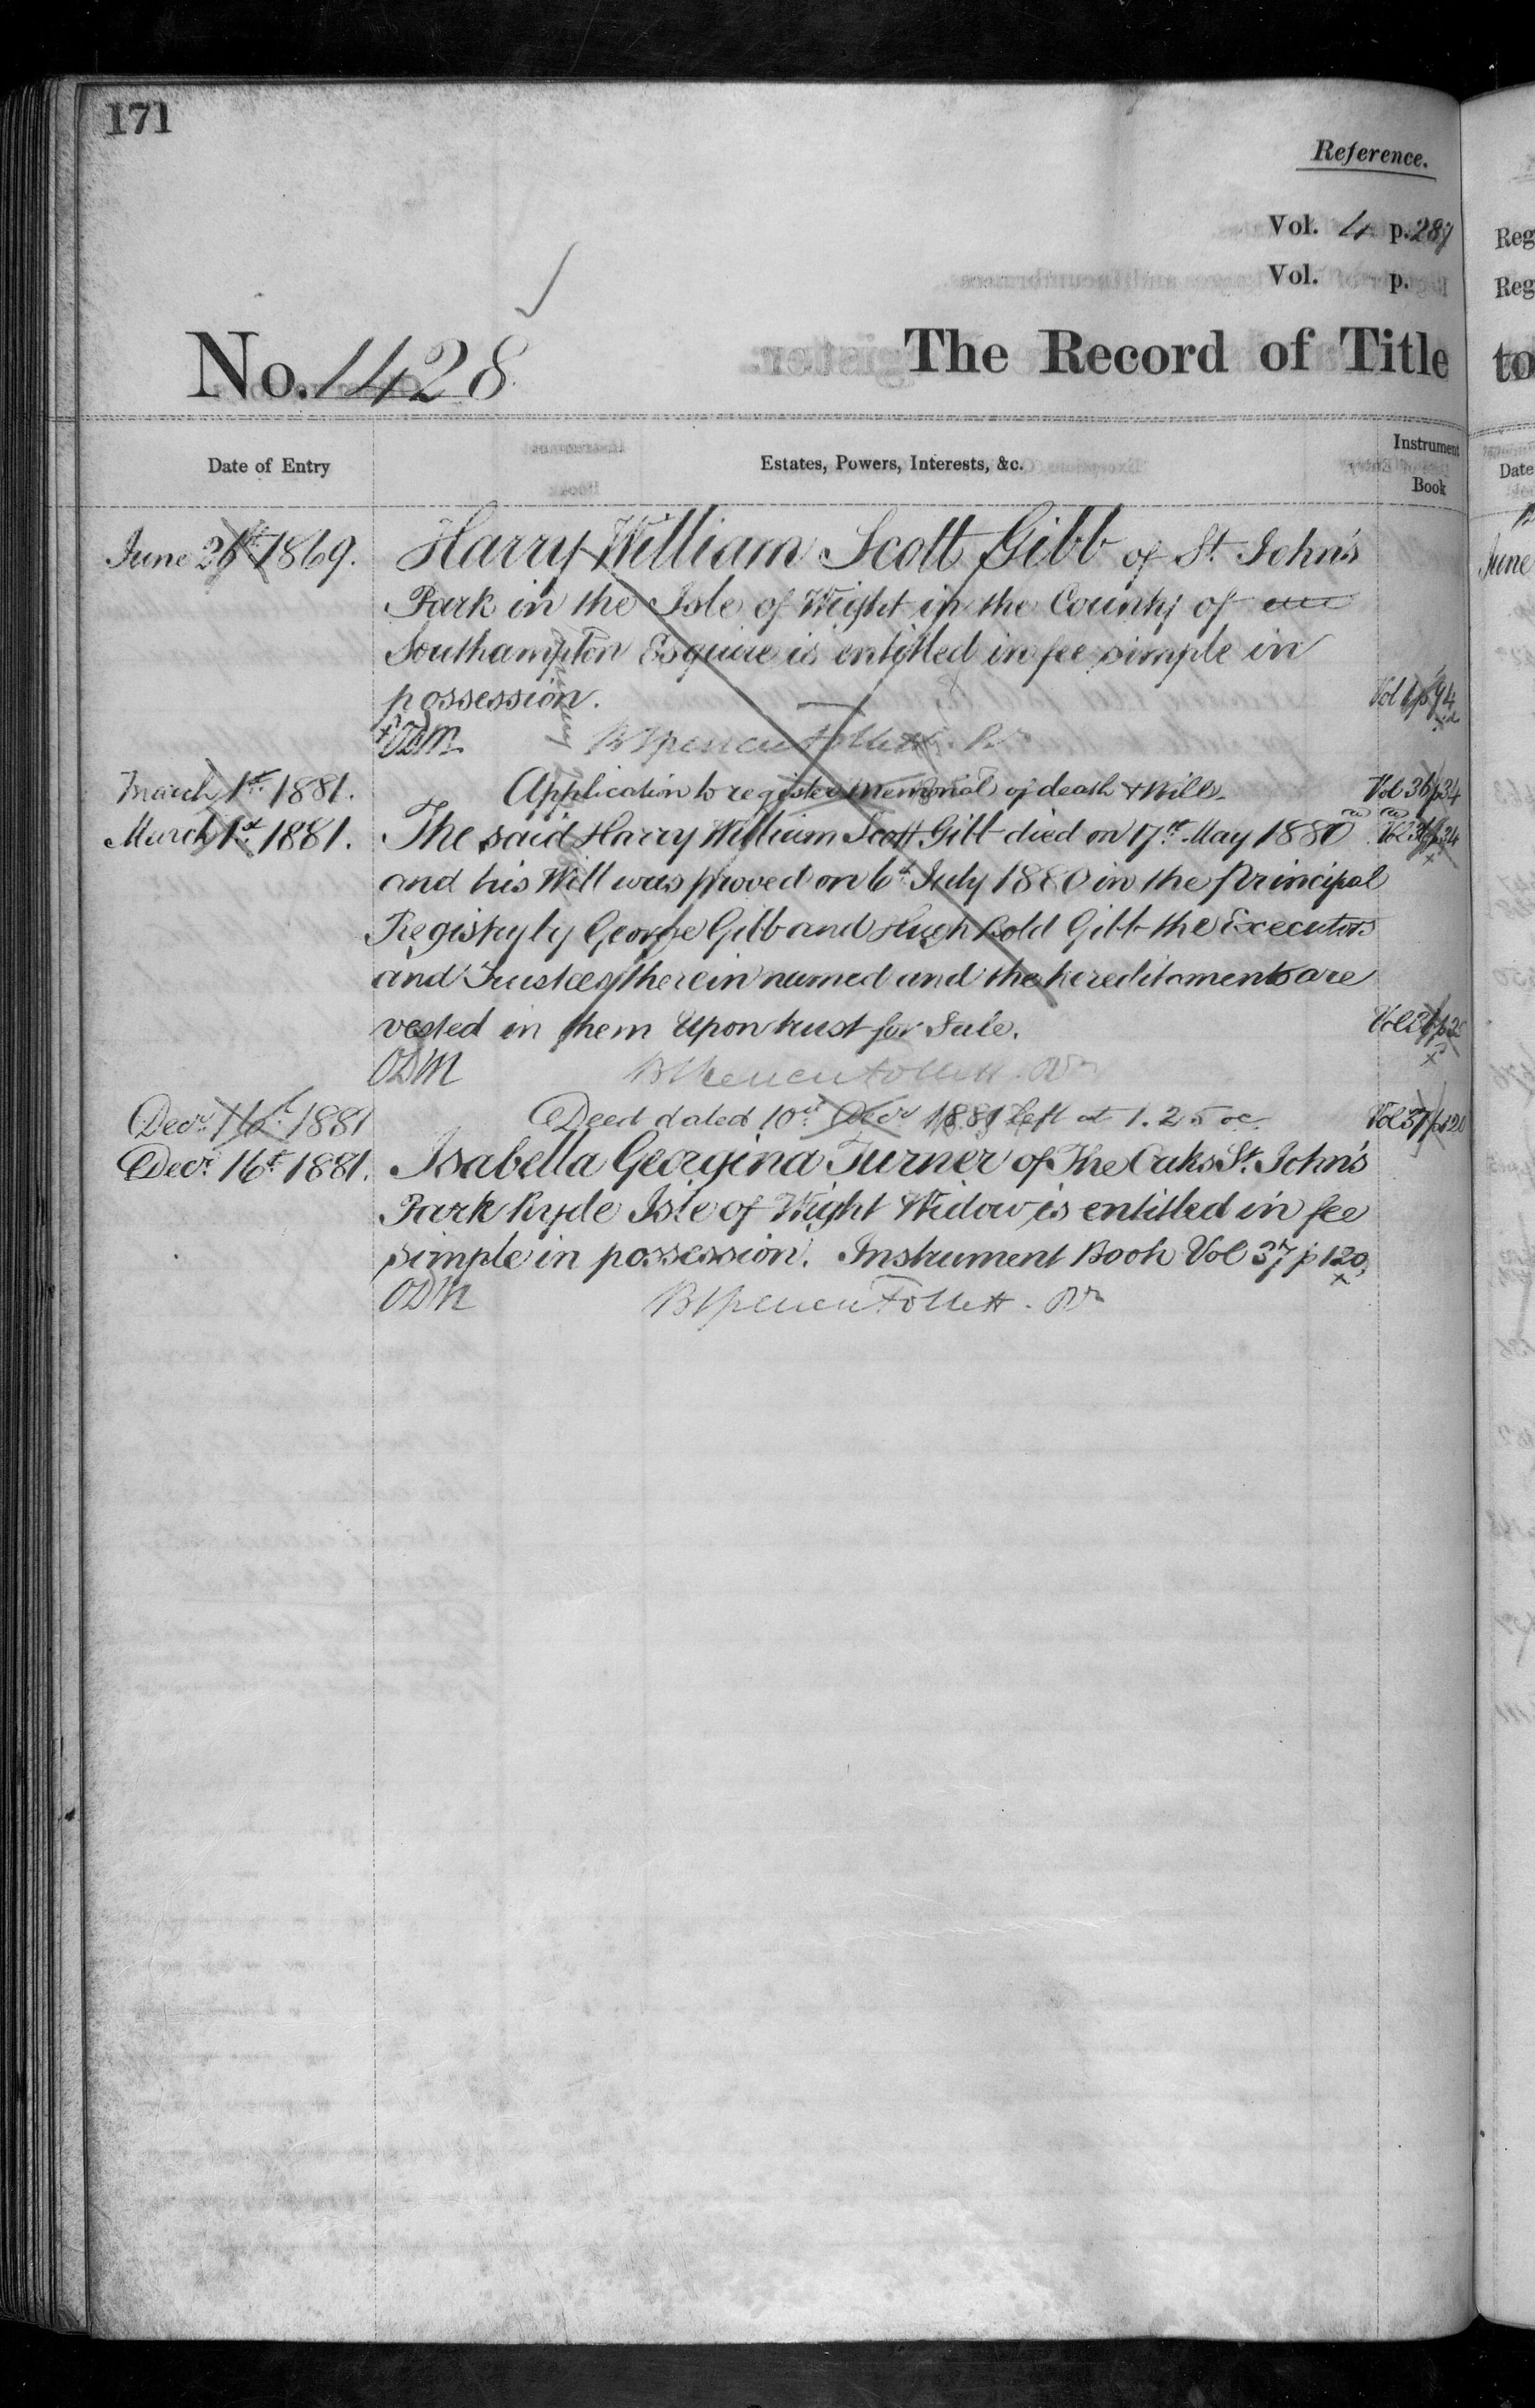 171
Reference.
Vol. 4 p. 287
Vol. p.
No. 1428
The Record of Title
Date of Entry
Estates, Powers, Interests, &c.
Instrument
Book
June 26th 1869. Harry William Scott Gibb of St. John's
Park in the Isle of Wight in the County of
Southampton Esquire is entitled in fee simple in
possession. Vol
ODM BSpencer Follett. Rr
March 1st 1881. Application to register Memorial of death & Will. Vol 36 p 34
March 1st 1881. The said Harry William Scott Gibb died on 17th May 1880 Vol 36 p 34
and his Will was proved on 6th July 1880 in the Principal
Registry by George Gibb and Hugh Bold Gibb the Executors
and Trustees therein named and the hereditaments are
vested in them Upon trust for Sale. Vol
ODM BSpencer Follett. Rr
Decr. 16th 1881 Deed dated 10th Decr 1881 left at 1.25 oc. Vol 37 p 120
Decr. 16th 1881. Isabella Georgina Turner of The Oaks St. John's
Park Ryde Isle of Wight Widow is entitled in fee
simple in possession. Instrument Book Vol 37 p 120
ODM BSpencer Follett. Rr
Reg
Reg
to
Date
June